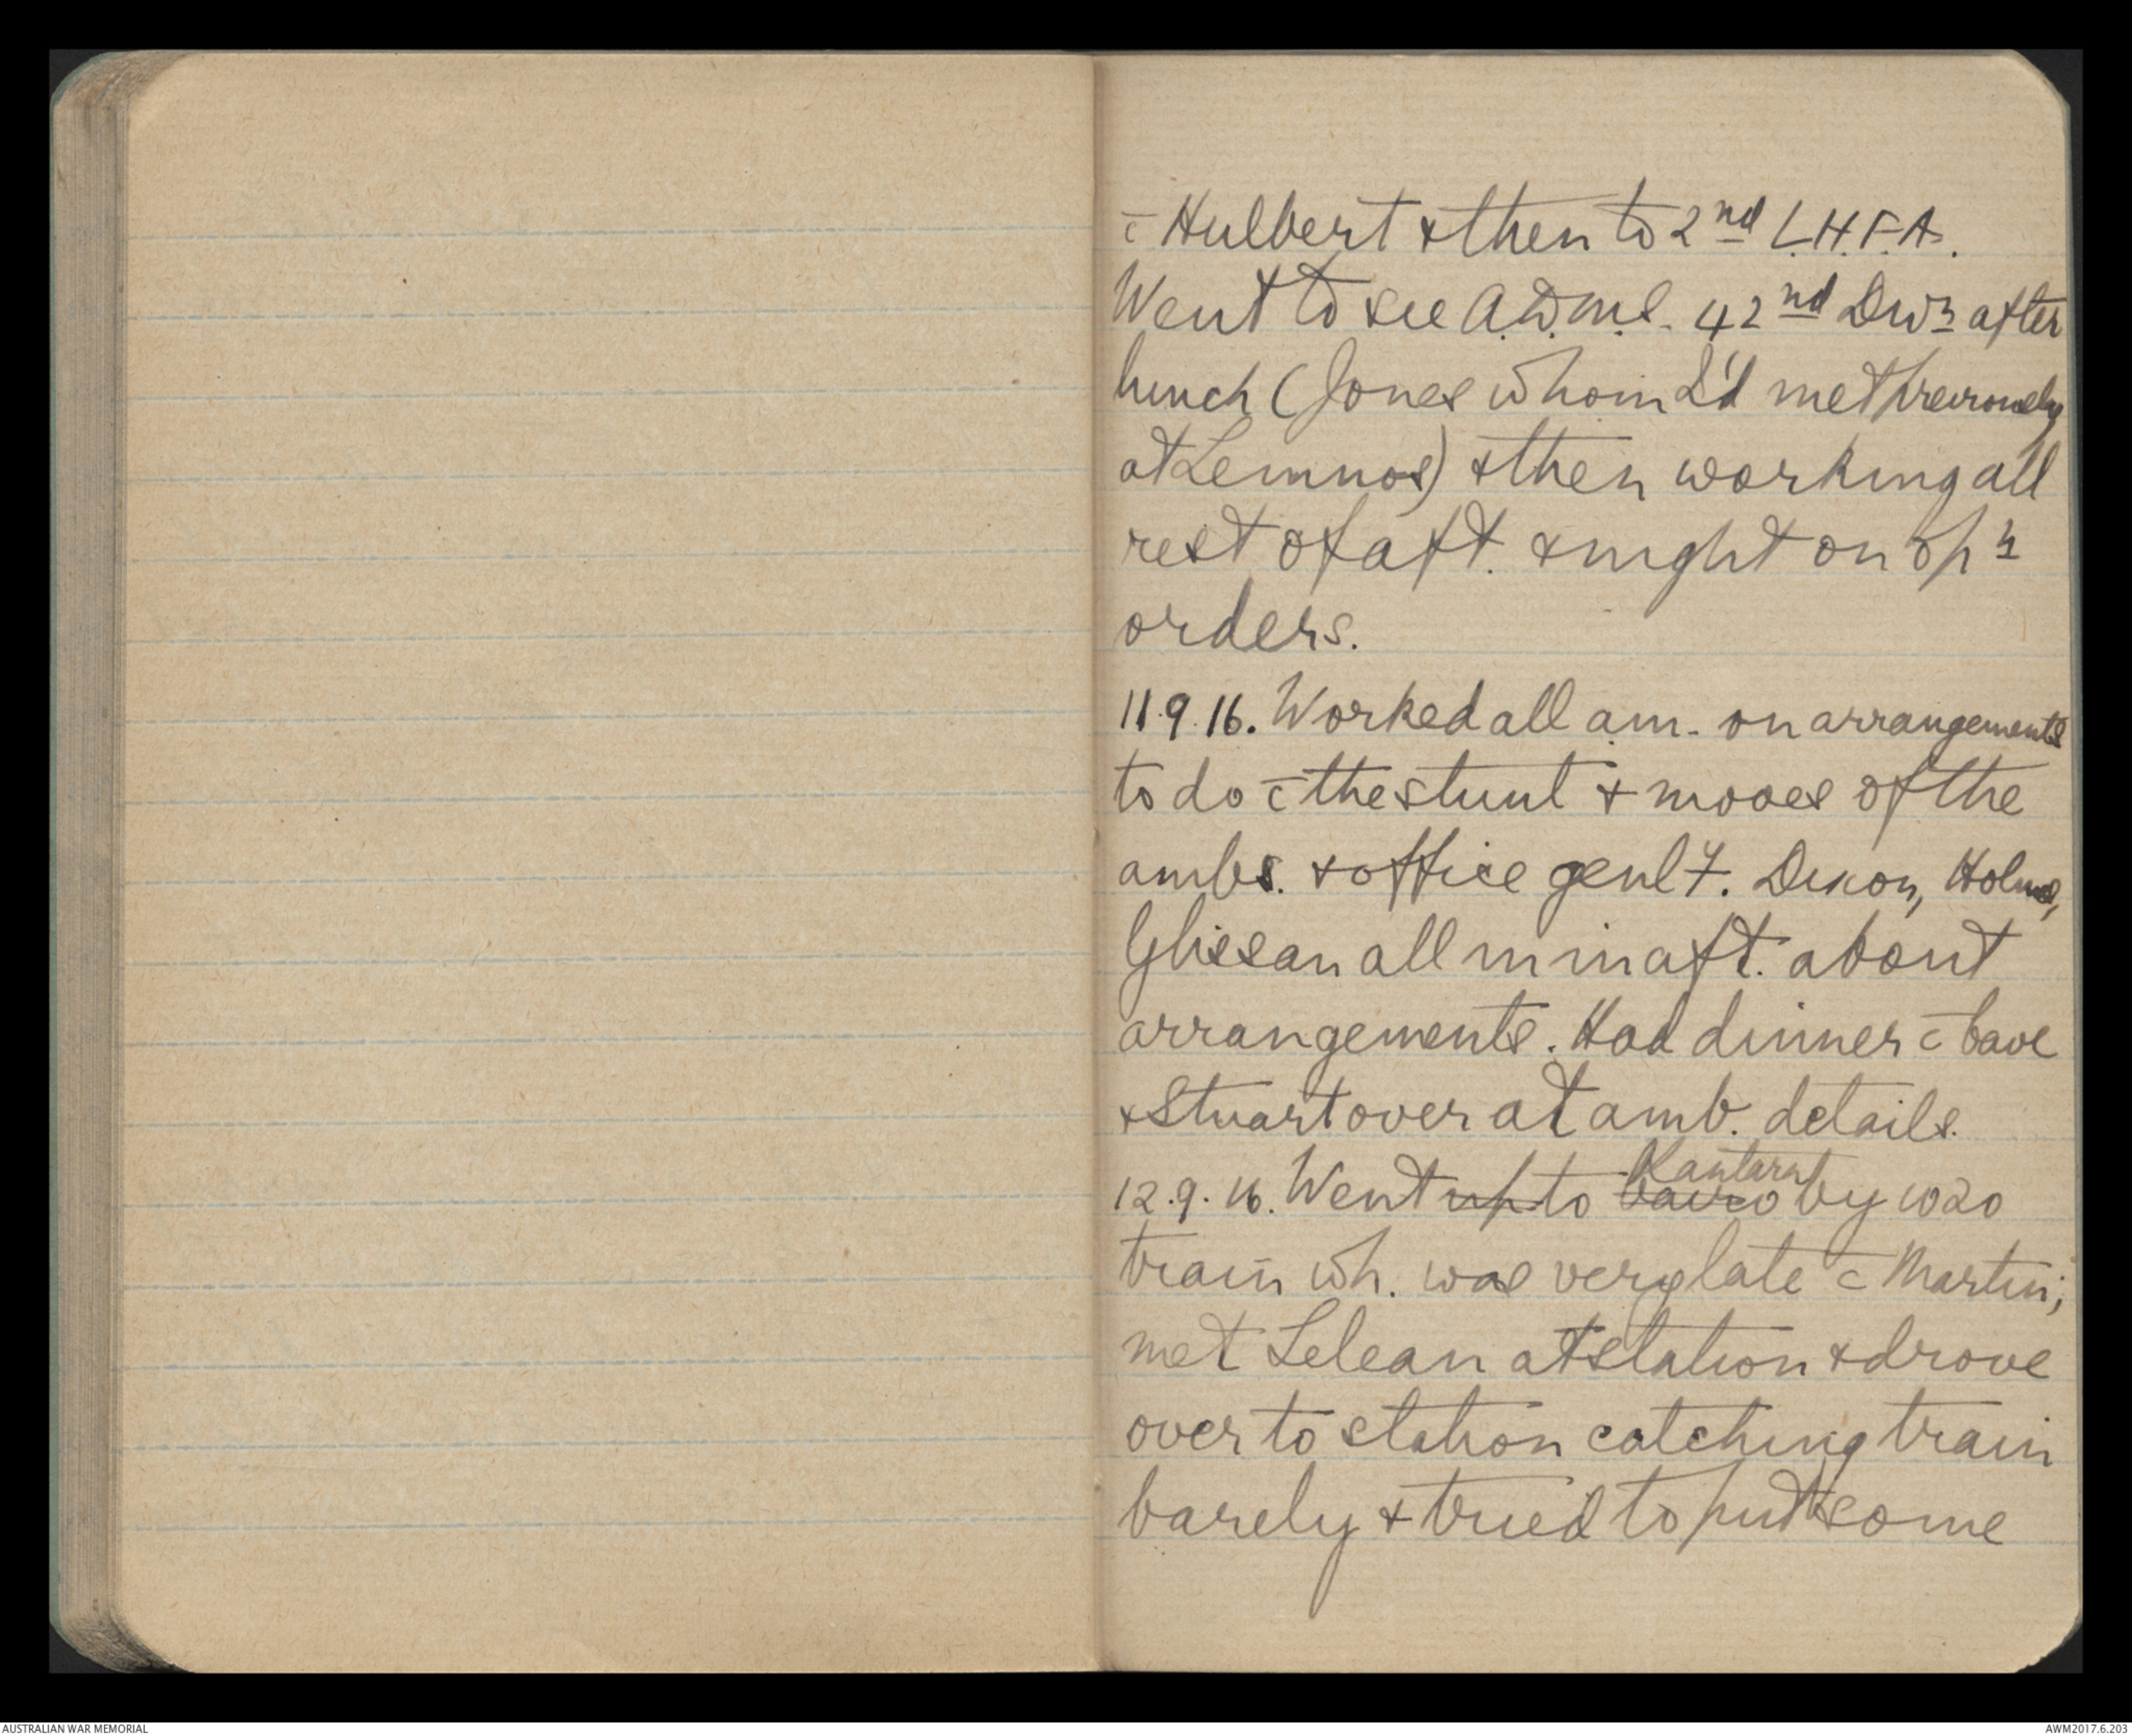 c̄ Hulbert & then to 2nd L.H.F.A.
Went to see A.D.M.S. 42nd Divn after
lunch (Jones whom I'd met previously
at Lemnos) & then working all
rest of aft. & night on opn
orders.
11.9.16. Worked all a.m. on arrangements
to do c̄ the stunt & moves of the
ambs. & office genly. Dixon, Holmes,
Glissan all in in aft. about
arrangements. Had dinner c̄ Cave
& Stuart over at amb. details.
12.9.16. Went up to Cairo Kantara by 1020
train wh. was very late c̄ Martin;
met Lelean at station & drove
over to station catching train
barely & tried to put some
AUSTRALIAN WAR MEMORIAL
AWM2017.6.203